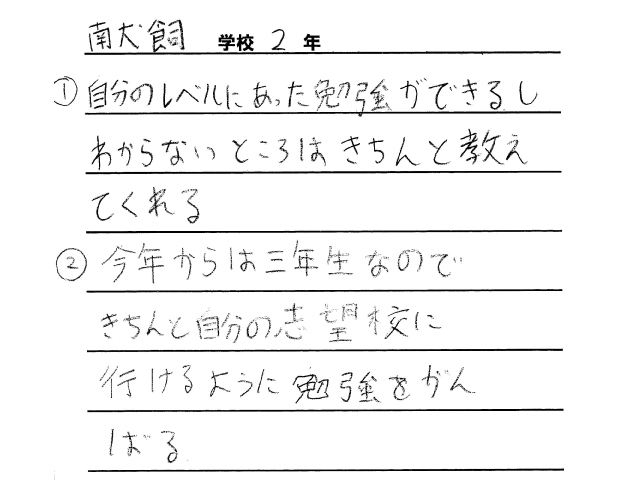 南犬飼 学校 2 年
① 自分のレベルにあった勉強ができるし
わからないところはきちんと教え
てくれる
② 今年からは三年生なので
きちんと自分の志望校に
行けるように勉強をがん
ばる